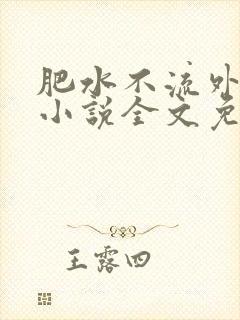 肥水不流外
小说全文免
王露四